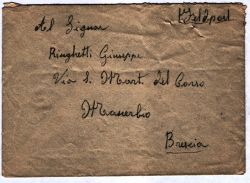 Feldpost
Al Signor
Ringhetti Giuseppe
Via S. Mart. del Corso
Manerbio
Brescia